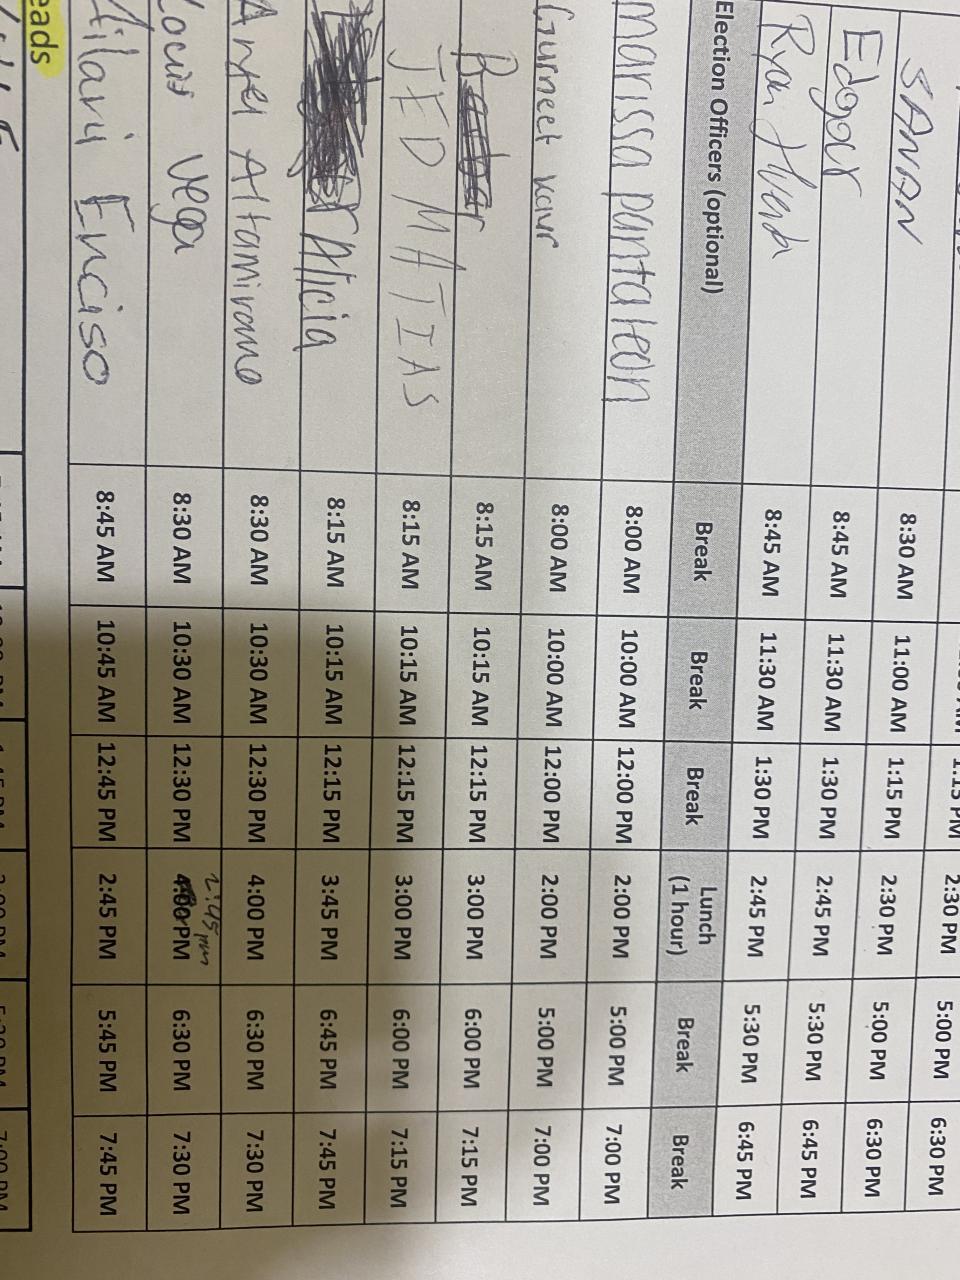 2:30 PM 5:00 PM 6:30 PM
SAVAN 8:30 AM 11:00 AM 1:15 PM 2:30 PM 5:00 PM 6:30 PM
Edgar 8:45 AM 11:30 AM 1:30 PM 2:45 PM 5:30 PM 6:45 PM
Ryan 8:45 AM 11:30 AM 1:30 PM 2:45 PM 5:30 PM 6:45 PM
Election Officers (optional) Break Break Break Lunch (1 hour) Break Break
Marissa pantaleon 8:00 AM 10:00 AM 12:00 PM 2:00 PM 5:00 PM 7:00 PM
Gurneet kaur 8:00 AM 10:00 AM 12:00 PM 2:00 PM 5:00 PM 7:00 PM
8:15 AM 10:15 AM 12:15 PM 3:00 PM 6:00 PM 7:15 PM
JED MATIAS 8:15 AM 10:15 AM 12:15 PM 3:00 PM 6:00 PM 7:15 PM
Alicia 8:15 AM 10:15 AM 12:15 PM 3:45 PM 6:45 PM 7:45 PM
Angel Altamirano 8:30 AM 10:30 AM 12:30 PM 4:00 PM 6:30 PM 7:30 PM
2:45 pm
Vega 8:30 AM 10:30 AM 12:30 PM 4:00 PM 6:30 PM 7:30 PM
Enciso 8:45 AM 10:45 AM 12:45 PM 2:45 PM 5:45 PM 7:45 PM
eads